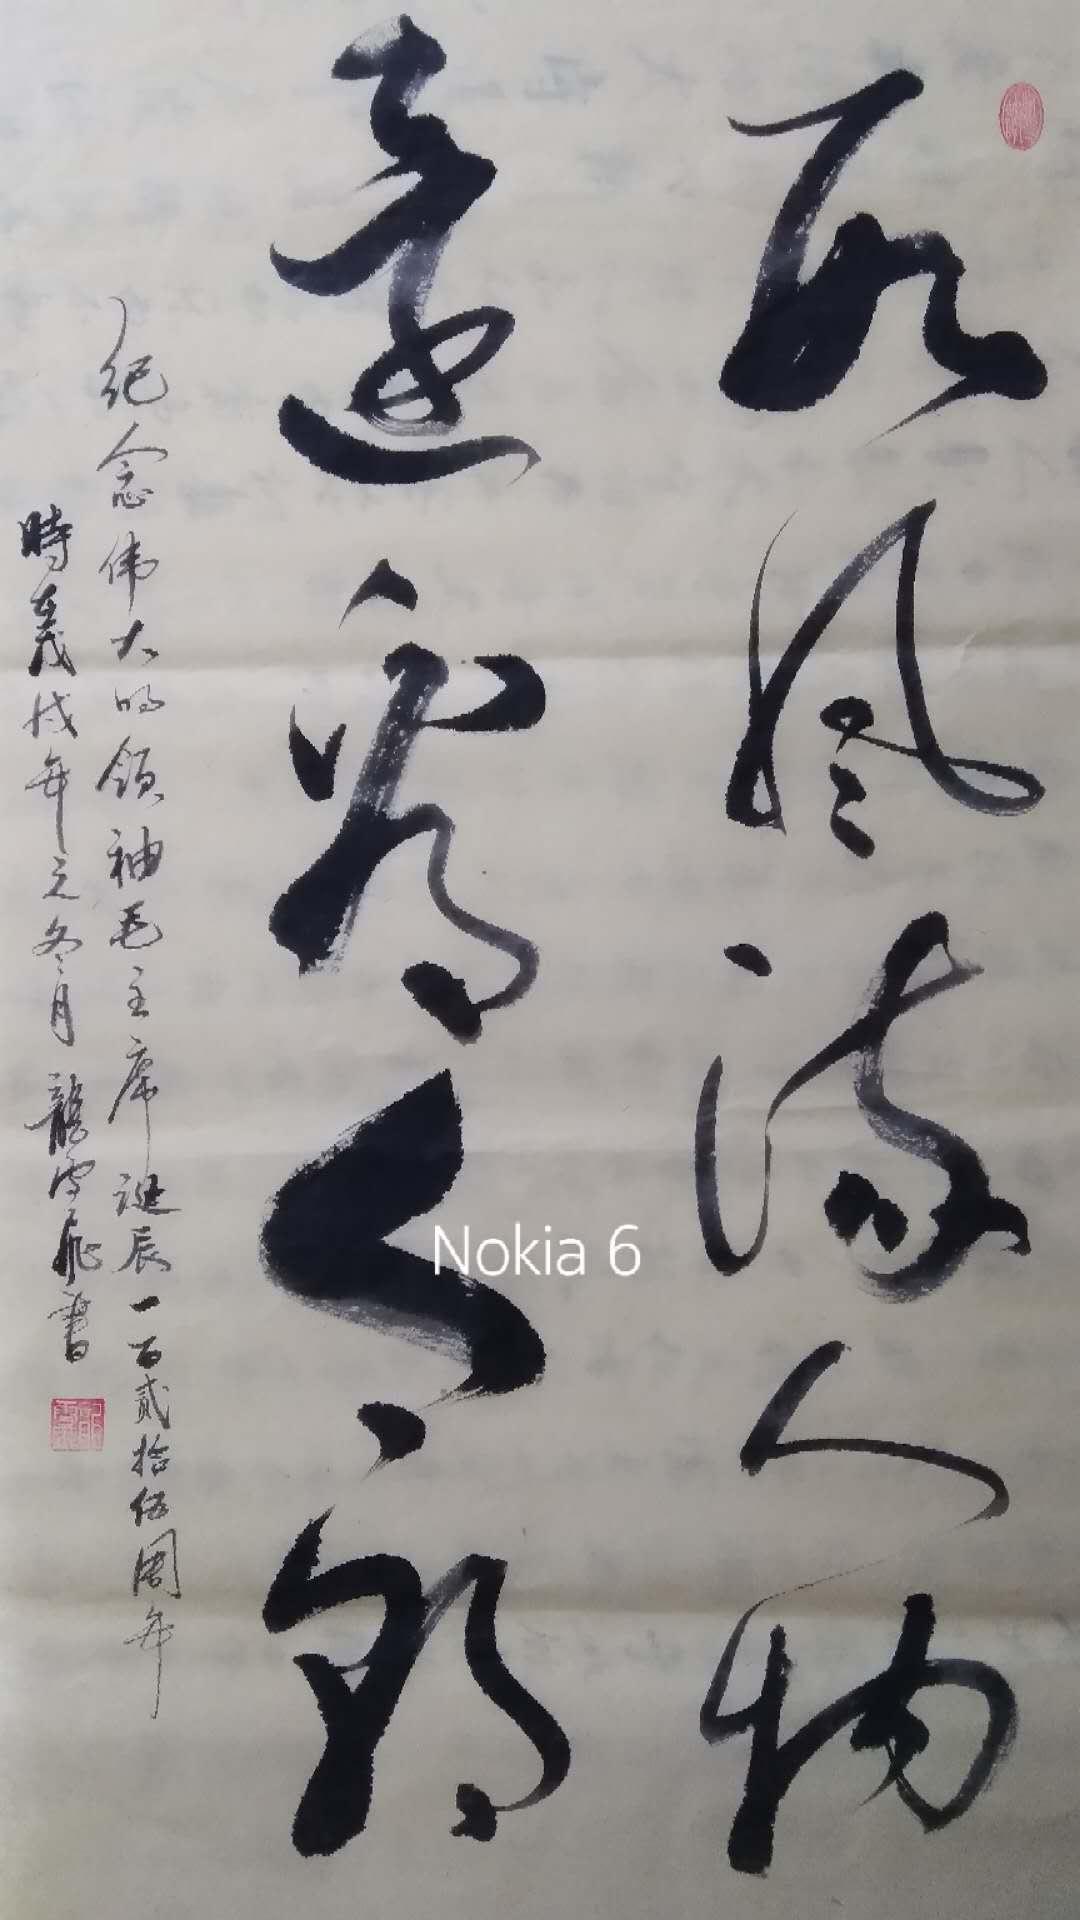 数风流人物
還看今朝
纪念伟大的领袖毛主席诞辰一百贰拾伍周年
時在戊戌年之冬月 龍飛書
Nokia 6